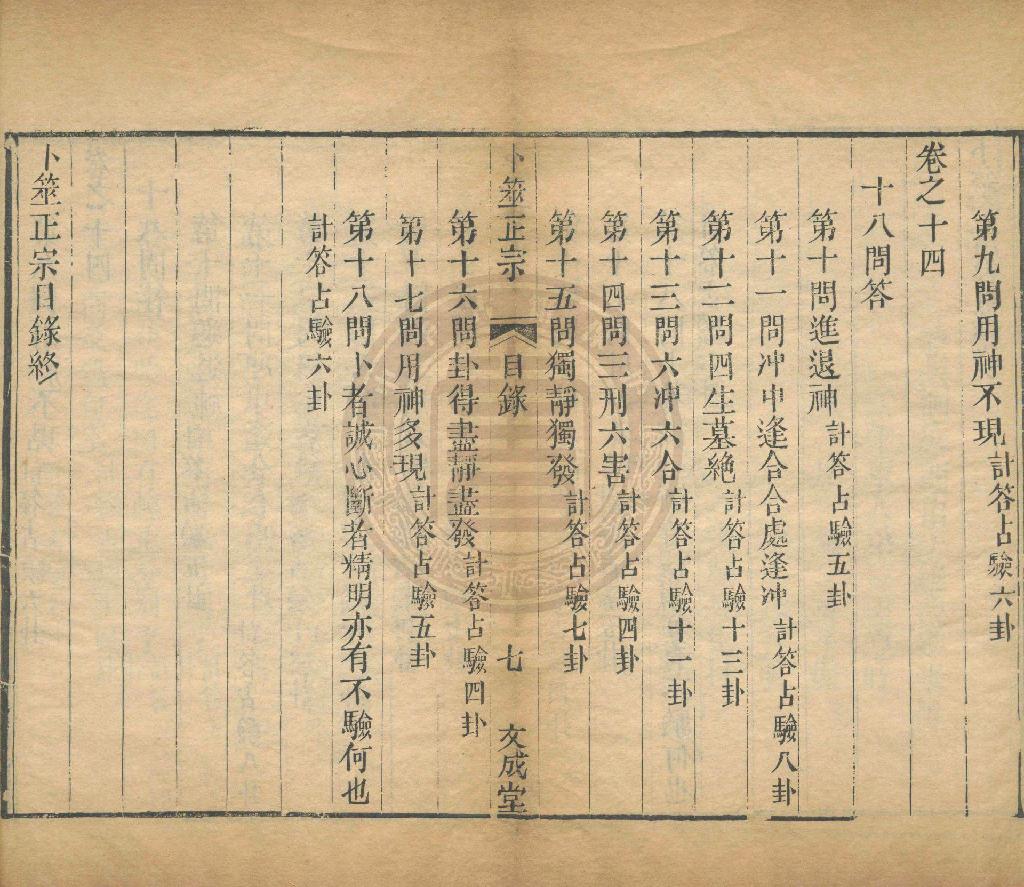 第九問用神不現計答占驗六卦
卷之十四
十八問答
第十問進退神計答占驗五卦
第十一問冲中逢合合處逢冲計答占驗八卦
第十二問四生墓絶計答占驗十三卦
第十三問六冲六合計答占驗十一卦
第十四問三刑六害計答占驗四卦
第十五問獨靜獨發計答占驗七卦
卜筮正宗 目錄 七 文成堂
第十六問卦得盡靜盡發計答占驗四卦
第十七問用神多現計答占驗五卦
第十八問卜者誠心斷者精明亦有不驗何也
計答占驗六卦
卜筮正宗目錄終